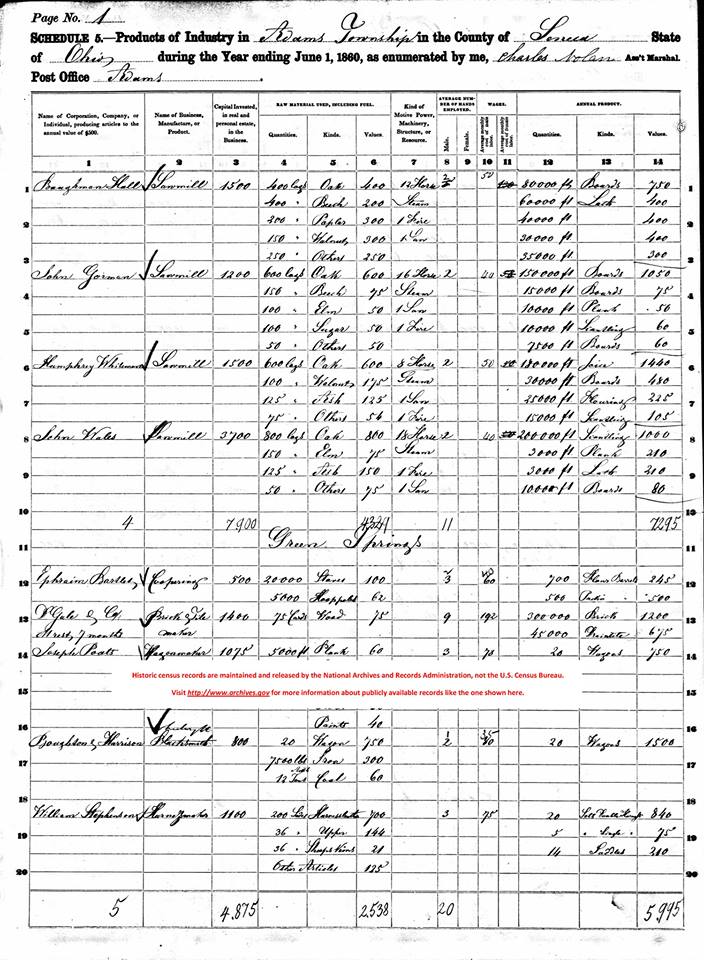 Page No. 1
SCHEDULE 5.—Products of Industry in Adams Township in the County of Seneca State
of Ohio, during the Year ending June 1, 1860, as enumerated by me, Charles Nolan Ass't Marshal.
Post Office Adams.
Name of Corporation, Company, or Individual, producing articles to the annual value of $500.
Name of Business, Manufacture, or Product.
Capital Invested, in real and personal estate, in the Business.
RAW MATERIAL USED, INCLUDING FUEL.
Quantities. Kinds. Values.
Kind of Motive Power, Machinery, Structure, or Resource.
AVERAGE NUMBER OF HANDS EMPLOYED.
Male. Female.
WAGES.
Average monthly cost of male labor. Average monthly cost of female labor.
ANNUAL PRODUCT.
Quantities. Kinds. Values.
1 2 3 4 5 6 7 8 9 10 11 12 13 14
1 Baughman Hall Sawmill 1500 400 Logs Oak 400 12 Horse 2 50 80000 ft Boards 750 1
400 " Beech 200 Steam 60000 ft Lath 400
2 200 " Poplar 300 1 Fire 40000 ft 400 2
150 " Walnut 300 1 Saw 30000 ft 400
3 250 " Others 250 35000 ft 300 3
John Gorman Sawmill 1200 600 Logs Oak 600 16 Horse 2 40 150000 ft Boards 1050
4 150 " Beech 75 Steam 15000 ft Boards 75 4
100 " Elm 50 1 Saw 10000 ft Plank 50
5 100 " Sugar 50 1 Fire 10000 ft Scantling 60 5
50 " Others 50 7500 ft Boards 60
6 Humphrey Whiteman Sawmill 1500 600 Logs Oak 600 8 Horse 2 50 180000 ft 1440 6
100 " Walnut 175 Steam 30000 ft Boards 480
7 125 " Ash 125 1 Saw 25000 ft Flouring 225 7
75 " Others 56 1 Fire 15000 ft Scantling 105
8 John Wales Sawmill 3700 800 Logs Oak 800 18 Horse 2 40 200000 ft Scantling 1000 8
150 " Elm 75 Steam 3000 ft Plank 210
9 125 " Ash 150 1 Fire 3000 ft Lath 210 9
50 " Others 75 1 Saw 10000 ft Boards 80
10
4 7900 11 7295
11 Green Springs 11
12 Ephraim Bartlet Coopering 500 20000 Staves 100 3 60 700 Flour Barrels 245 12
5000 Hooppoles 62 500 500
13 Gale & Co Brick & Tile 1400 75 Cords Wood 75 9 192 300000 Brick 1200 13
7 months maker 45000 Draintile 675
14 Joseph Wagonmaker 1075 5000 ft Plank 60 3 78 20 Wagons 750 14
Historic census records are maintained and released by the National Archives and Records Administration, not the U.S. Census Bureau.
15 Visit http://www.archives.gov for more information about publicly available records like the one shown here. 15
16 Paints 40 16
Boughton & Harrison Blacksmith 800 20 Wagon 750 2 20 Wagons 1500
17 7500 lbs Iron 300 17
12 Tons Coal 60
18 18
William Stephenson Harnessmaker 1100 200 700 3 75 20 840
19 36 " Upper 144 5 " Single " 75 19
36 " Sheep Skins 21 14 Saddles 210
20 Other Articles 125 20
5 4.875 2.538 20 5995